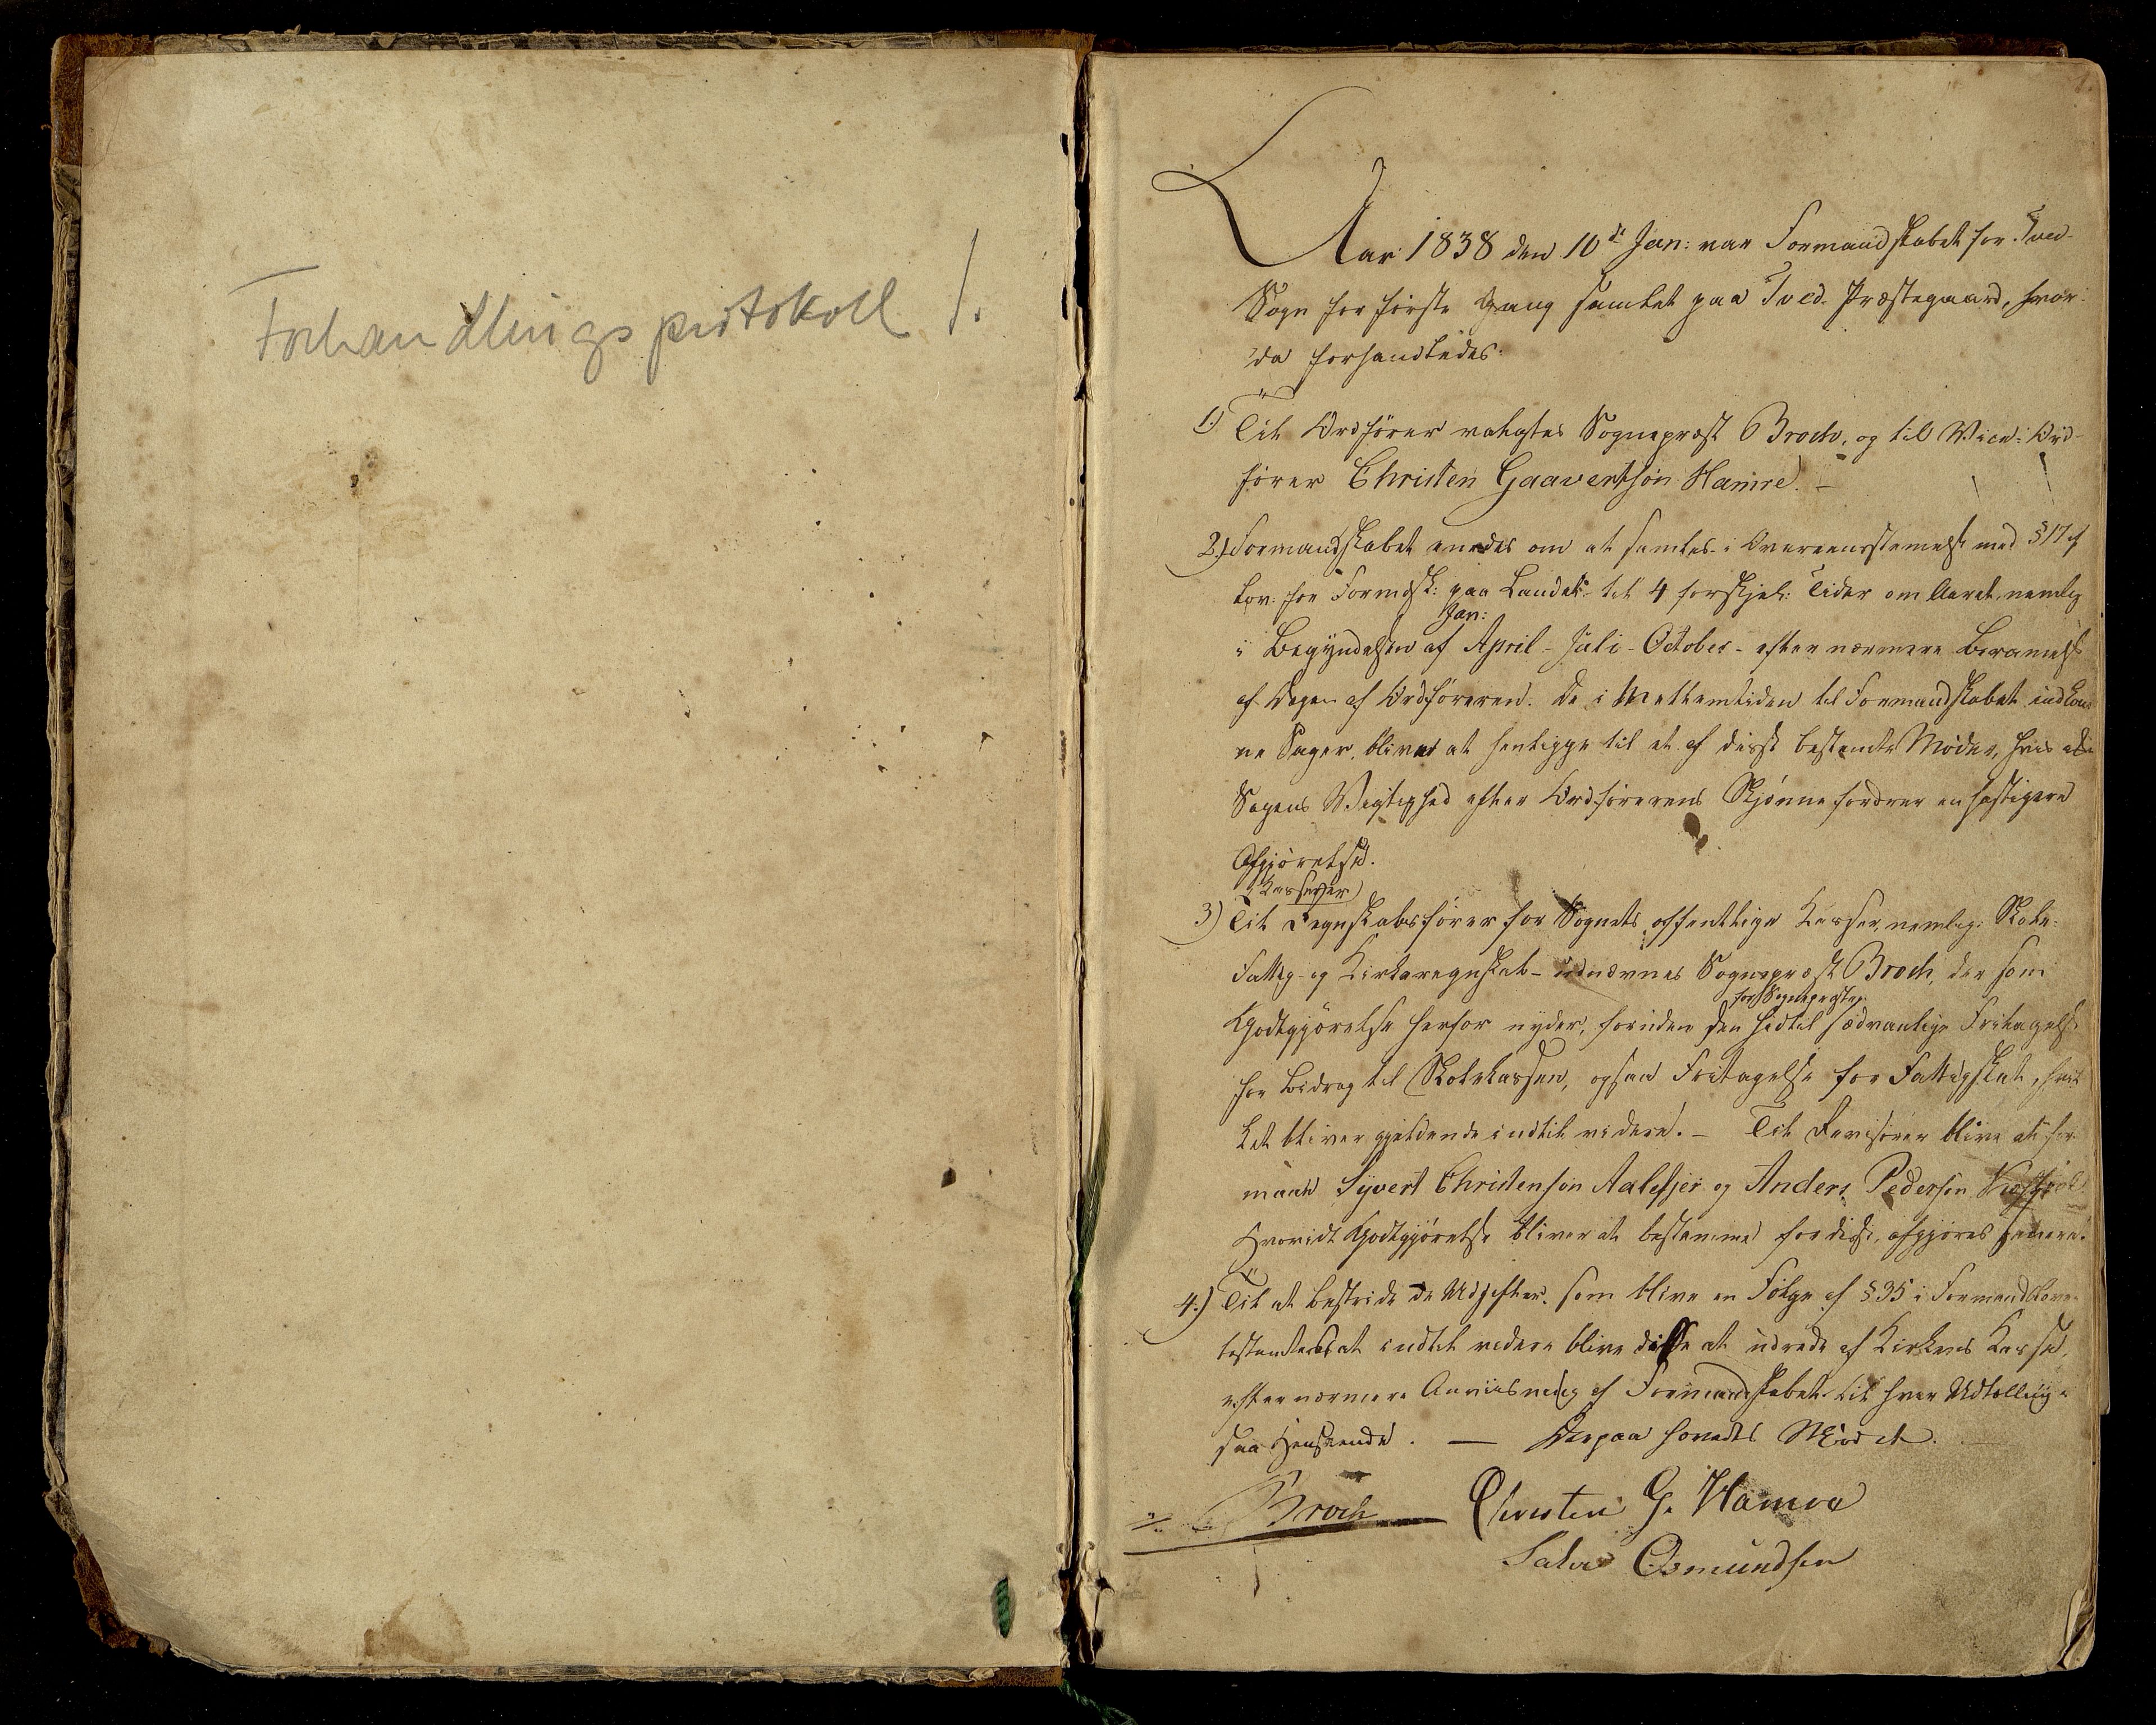 Forhandlingsprotokoll 1.
Aar 1838 den 10de Jan: var Formandskabet for Tved-
Sogn for første Gang samlet paa Tved Præstegaard, hvor
da forhandledes:
1) Til Ordfører valgtes Sognepræst Broch, og til Vice-Ord-
fører Christen Gaavertsøn Hamre. -
2) Formandskabet enedes om at samles i Overeensstemelse med § 17 af
Lov: for Formdsk: paa Landet til 4 forskjel: Tider om Aaret, nemlig
Jan:
i Begyndelsen af April - Juli - October - efter nærmere Berammelse
af Dagen af Ordføreren. De i Mellemtiden til Formandskabet indkom
ne Sager, bliver at henligge til et af disse bestemte Møder, hvis ei
Sagens Vigtighed efter Ordførerens Skjønne fordrer en hastigere
Afgjørelse.
(Kasserer)
3) Til Regnskabsfører for Sognets offentlige Kasser, nemlig: Skole-
Fattig- og Kirkeregnskab - udnævnes Sognepræst Broch, der som
for Sognepræsten
Godtgjørelse herfor nyder, foruden den hidtil sædvanlige Fritagelse
for Bidrag til Skolekassen, ogsaa Fritagelse for Fattigskat, hvil
ket bliver gjeldende indtil videre. - Til Revisorer blive at for
maae Syvert Christensøn Aalefjer og Anders Pedersen
Hvorvidt Godtgjørelse bliver at bestemme for disse, afgjøres senere.
4.) Til at bestride de Udgifter, som blive en Følge af § 35 i Formandsloven
bestemtes at indtil videre blive disse at udrede af Kirkens Kasse,
efter nærmere Anviisning af Formandskabet til hver Udtælling i
saa Henseende. - Derpaa hævedes Mødet.
Broch Christen G. Hamre
Salve Osmundsen